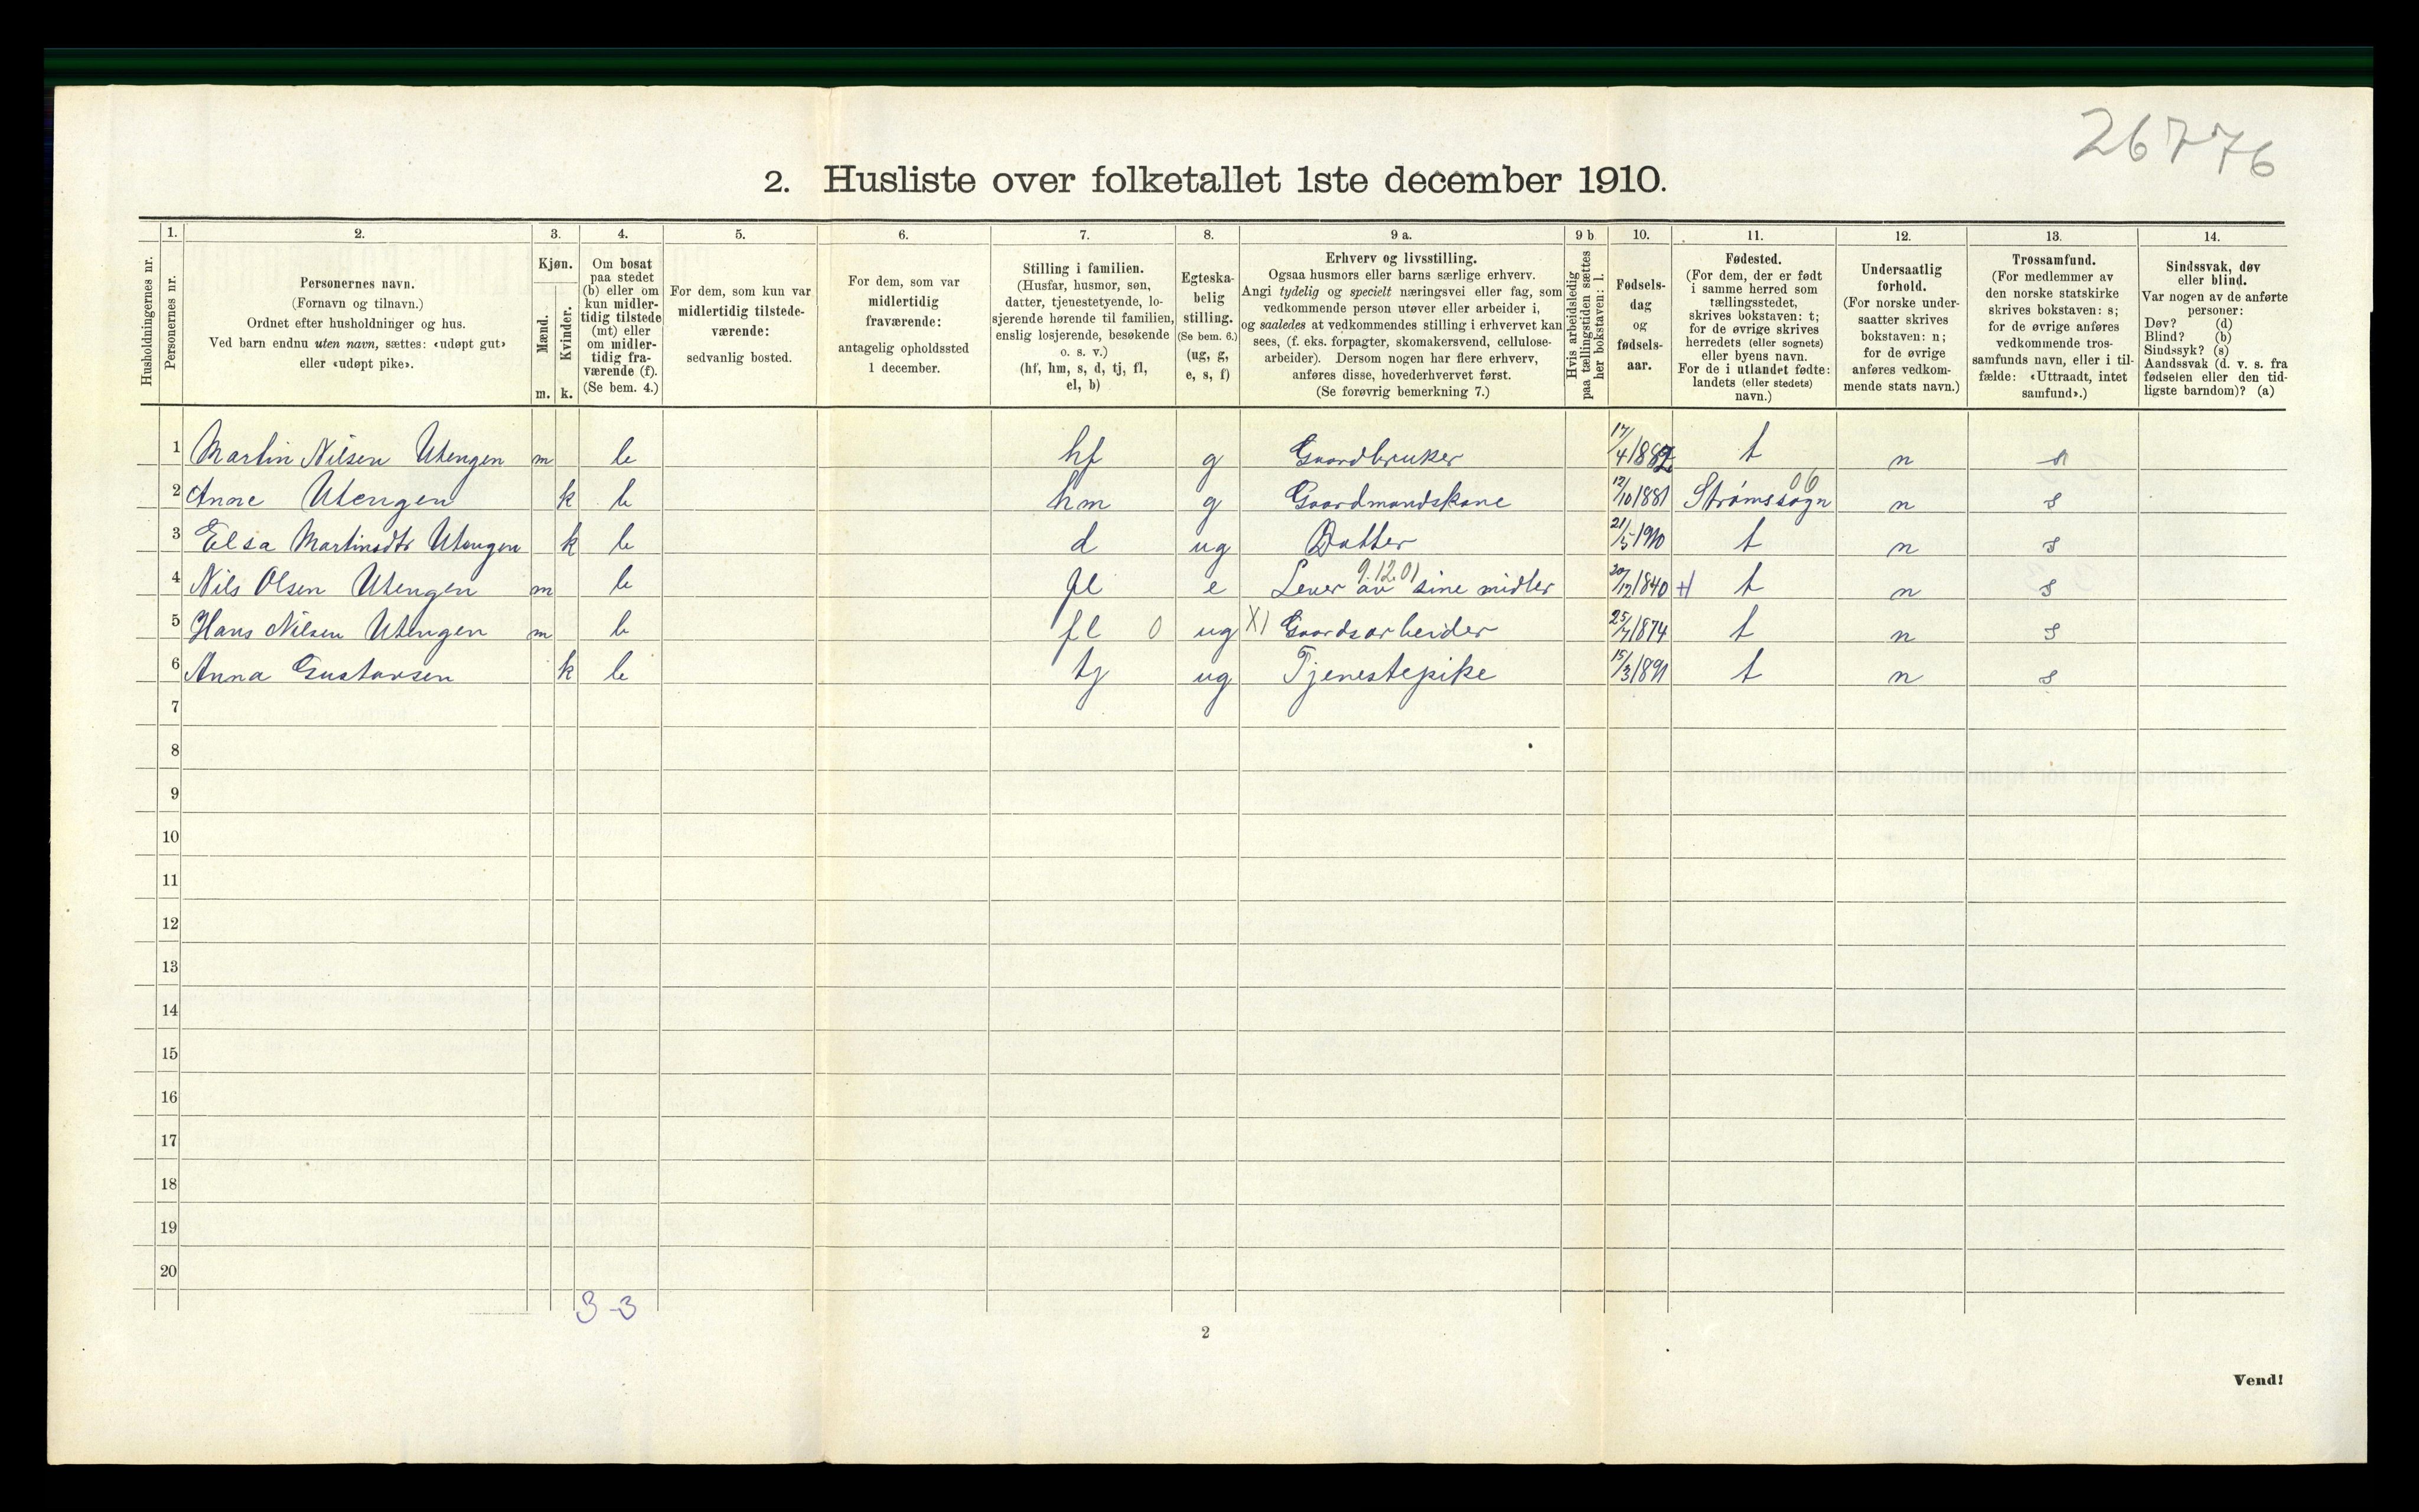 26776
2. Husliste over folketallet 1ste december 1910.
Husholdningernes nr.
1. Personernes nr.
2.
Personernes navn.
(Fornavn og tilnavn.)
Ordnet efter husholdninger og hus.
Ved barn endnu uten navn, sættes: «udøpt gut»
eller «udøpt pike».
3.
Kjøn.
Mænd. Kvinder.
m. k.
4.
Om bosat
paa stedet
(b) eller om
kun midler-
tidig tilstede
(mt) eller
om midler-
tidig fra-
værende (f).
(Se bem. 4.)
5.
For dem, som kun var
midlertidig tilstede-
værende:
sedvanlig bosted.
6.
For dem, som var
midlertidig
fraværende:
antagelig opholdssted
1 december.
7.
Stilling i familien.
(Husfar, husmor, søn,
datter, tjenestetyende, lo-
sjerende hørende til familien,
enslig losjerende, besøkende
o. s. v.)
(hf, hm, s, d, tj, fl,
el, b)
8.
Egteska-
belig
stilling.
(Se bem. 6.)
(ug, g,
e, s, f)
9 a.
Erhverv og livsstilling.
Ogsaa husmors eller barns særlige erhverv.
Angi tydelig og specielt næringsvei eller fag, som
vedkommende person utøver eller arbeider i,
og saaledes at vedkommendes stilling i erhvervet kan
sees, (f. eks. forpagter, skomakersvend, cellulose-
arbeider). Dersom nogen har flere erhverv,
anføres disse, hovederhvervet først.
(Se forøvrig bemerkning 7.)
9 b
Hvis arbeidsledig
paa tællingstiden sættes
her bokstaven: l.
10.
Fødsels-
dag
og
fødsels-
aar.
11.
Fødested.
(For dem, der er født
i samme herred som
tællingsstedet,
skrives bokstaven: t;
for de øvrige skrives
herredets (eller sognets)
eller byens navn.
For de i utlandet fødte:
landets (eller stedets)
navn.)
12.
Undersaatlig
forhold.
(For norske under-
saatter skrives
bokstaven: n;
for de øvrige
anføres vedkom-
mende stats navn.)
13.
Trossamfund.
(For medlemmer av
den norske statskirke
skrives bokstaven: s;
for de øvrige anføres
vedkommende tros-
samfunds navn, eller i til-
fælde: «Uttraadt, intet
samfund».)
14.
Sindssvak, døv
eller blind.
Var nogen av de anførte
personer:
Døv? (d)
Blind? (b)
Sindssyk? (s)
Aandssvak (d. v. s. fra
fødselen eller den tid-
ligste barndom)? (a)
1 Martin Nilsen Utengen m b hf g Gaardbruker 17/4 1882 t n s
2 Anne Utengen k b hm g Gaardmandskone 12/10 1881 Strømssogn 06 n s
3 Elsa Martinsdtr Utengen k b d ug Datter 21/5 1910 t n s
9.12.01
4 Nils Olsen Utengen m b fl e Lever av sine midler 20/12 1840 t n s
5 Hans Nilsen Utengen m b fl 0 ug X1 Gaardsarbeider 25/7 1874 t n s
6 Anna Gustavsen k b tj ug Tjenestepike 15/3 1891 t n s
7
8
9
10
11
12
13
14
15
16
17
18
19
20
3-3
2
Vend!